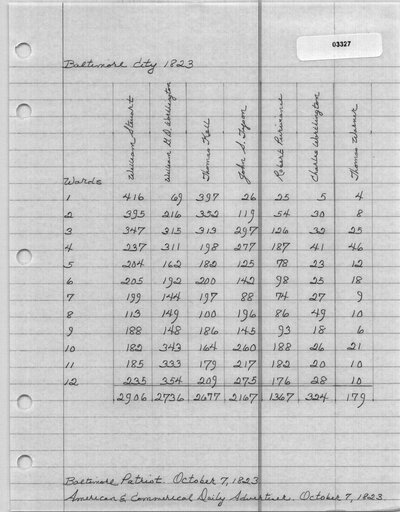 03327
Baltimore City 1823
Wards William Steuart William G.D. Worthington Thomas Kell John S. Tyson Robert Purviance Charles Worthington Thomas Warner
1 416 69 397 26 25 5 4
2 395 216 352 119 54 30 8
3 347 315 313 297 126 32 25
4 237 311 198 277 187 41 46
5 204 162 182 125 78 23 12
6 205 192 200 142 98 25 18
7 199 144 197 88 74 27 9
8 113 149 100 196 86 49 10
9 188 148 186 145 93 18 6
10 182 343 164 260 188 26 21
11 185 333 179 217 182 20 10
12 235 354 209 275 176 28 10
2906 2736 2677 2167 1367 324 179
Baltimore Patriot. October 7, 1823
American & Commercial Daily Advertiser. October 7, 1823.